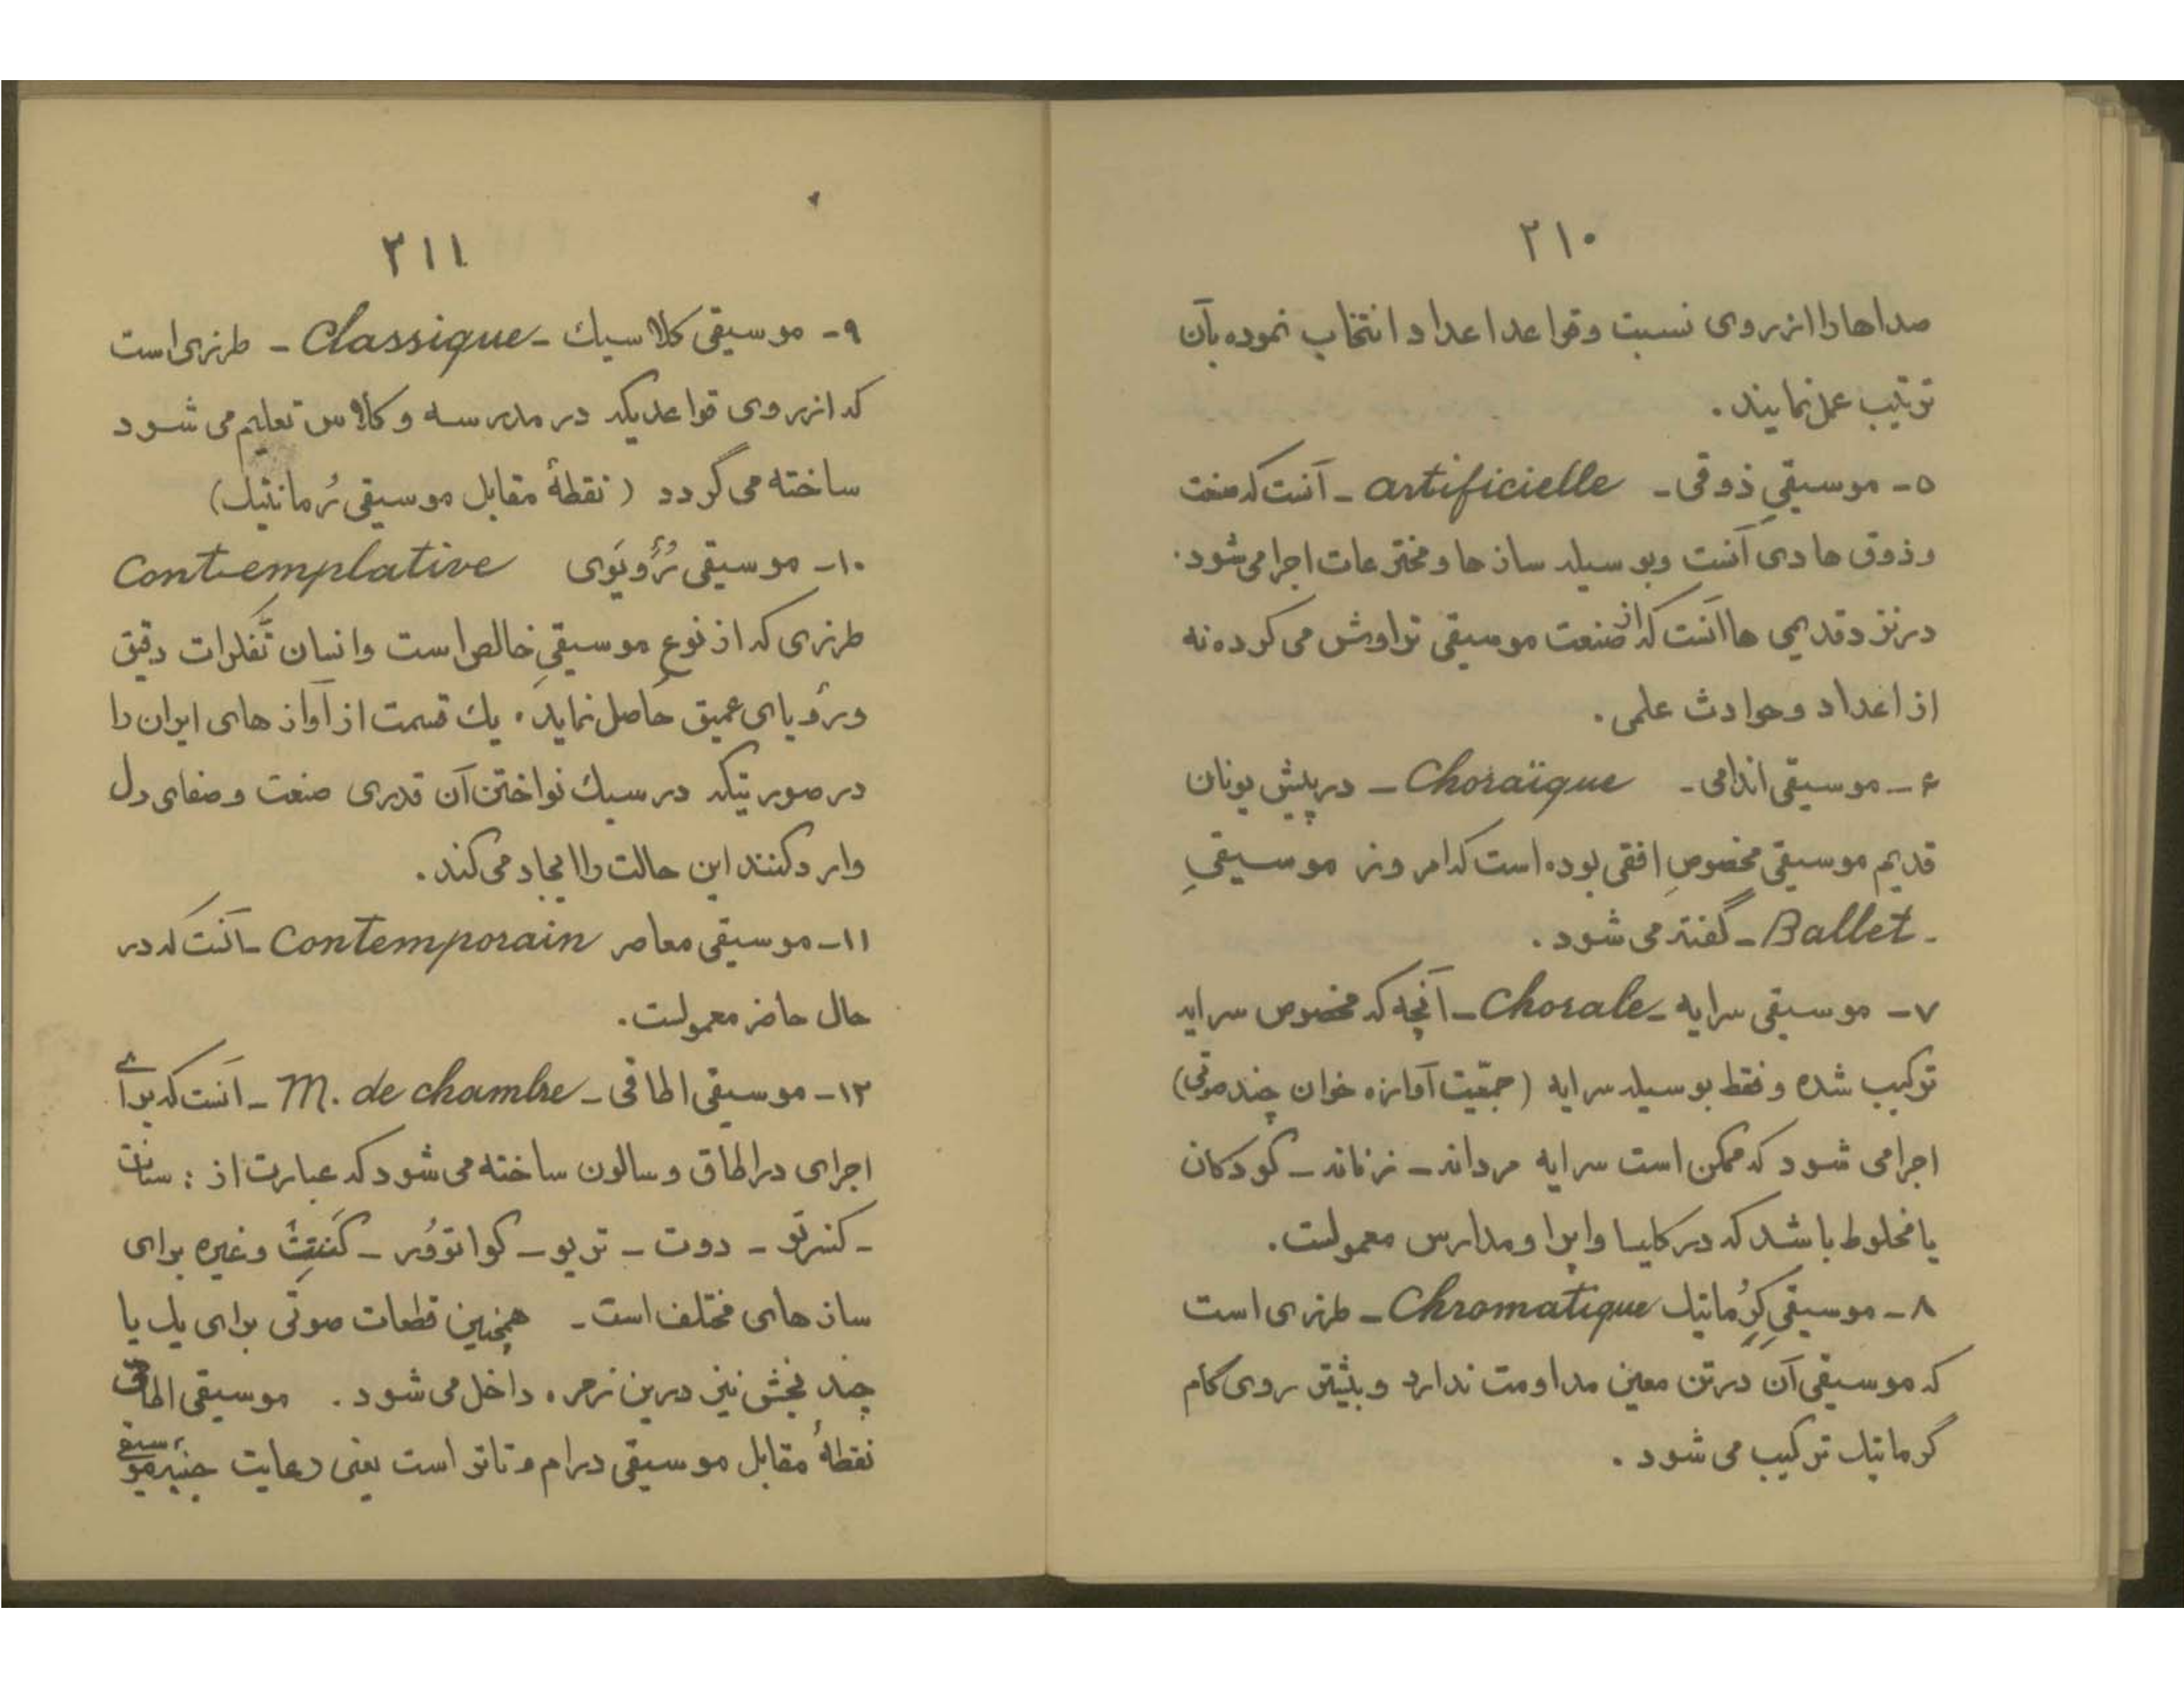 ۲۱۰
صداها را از روی نسبت و قواعد اعداد انتخاب نموده بآن
ترتیب عمل نمایند.
۵- موسیقیِ ذوقی - artificielle - آنست که صنعت
و ذوق هادی آنست و بوسیله سازها و مخترعات اجرا می‌شود.
در نزد قدیمی ها آنست که از صنعت موسیقی تراوش می‌کرده نه
از اعداد و حوادث علمی.
۶- موسیقی اندامی - Choraïque - در پیش یونان
قدیم موسیقی مخصوصِ افقی بوده است که امروز موسیقیِ
- Ballet - گفته می شود.
۷- موسیقی سرایه - Chorale - آنچه که مخصوص سرایه
ترکیب شده و فقط بوسیله سرایه (جمعّیت آوازه خوان چند صوتی)
اجرا می شود که ممکن است سرایه مردانه - زنانه - کودکان
یا مخلوط باشد که در کلیسا و اپرا و مدارس معمولست.
۸- موسیقیِ کرُماتیك Chromatique - طرزی است
که موسیقی آن در تن معین مداومت ندارد و بیشتر روی گام
کرماتیك ترکیب می شود.
۲۱۱
۹- موسیقی کلاسیك - Classique - طرزی است
که از روی قواعدیکه در مدرسه و کلاس تعلیم می شود
ساخته می گردد (نقطهٔ مقابل موسیقی رُمانتیك)
۱۰- موسیقی رُؤیَوی Contemplative
طرزی که از نوع موسیقیِ خالص است و انسان تفّکرات دقیق
و رؤیای عمیق حاصل نماید. یك قسمت از آواز های ایران را
در صورتیکه در سبك نواختن آن قدری صنعت و صفای دل
وارد کنند این حالت را ایجاد می کند.
۱۱- موسیقی معاصر Contemporain - آنست که در
حال حاضر معمولست.
۱۲- موسیقی اطاقی - M. de chambre - آنست که برای
اجرای در اطاق و سالون ساخته می شود که عبارت از : سنات
- کنسرتو - دوت - تریو - کواتوُر - کنتت و غیره برای
ساز های مختلف است - همچنین قطعات صوتی برای یك یا
چند بخش نیز درین زمره داخل می شود. موسیقی اطاقی
نقطهٔ مقابل موسیقی درام و تاتر است یعنی رعایت جنبهٔ موسیقی